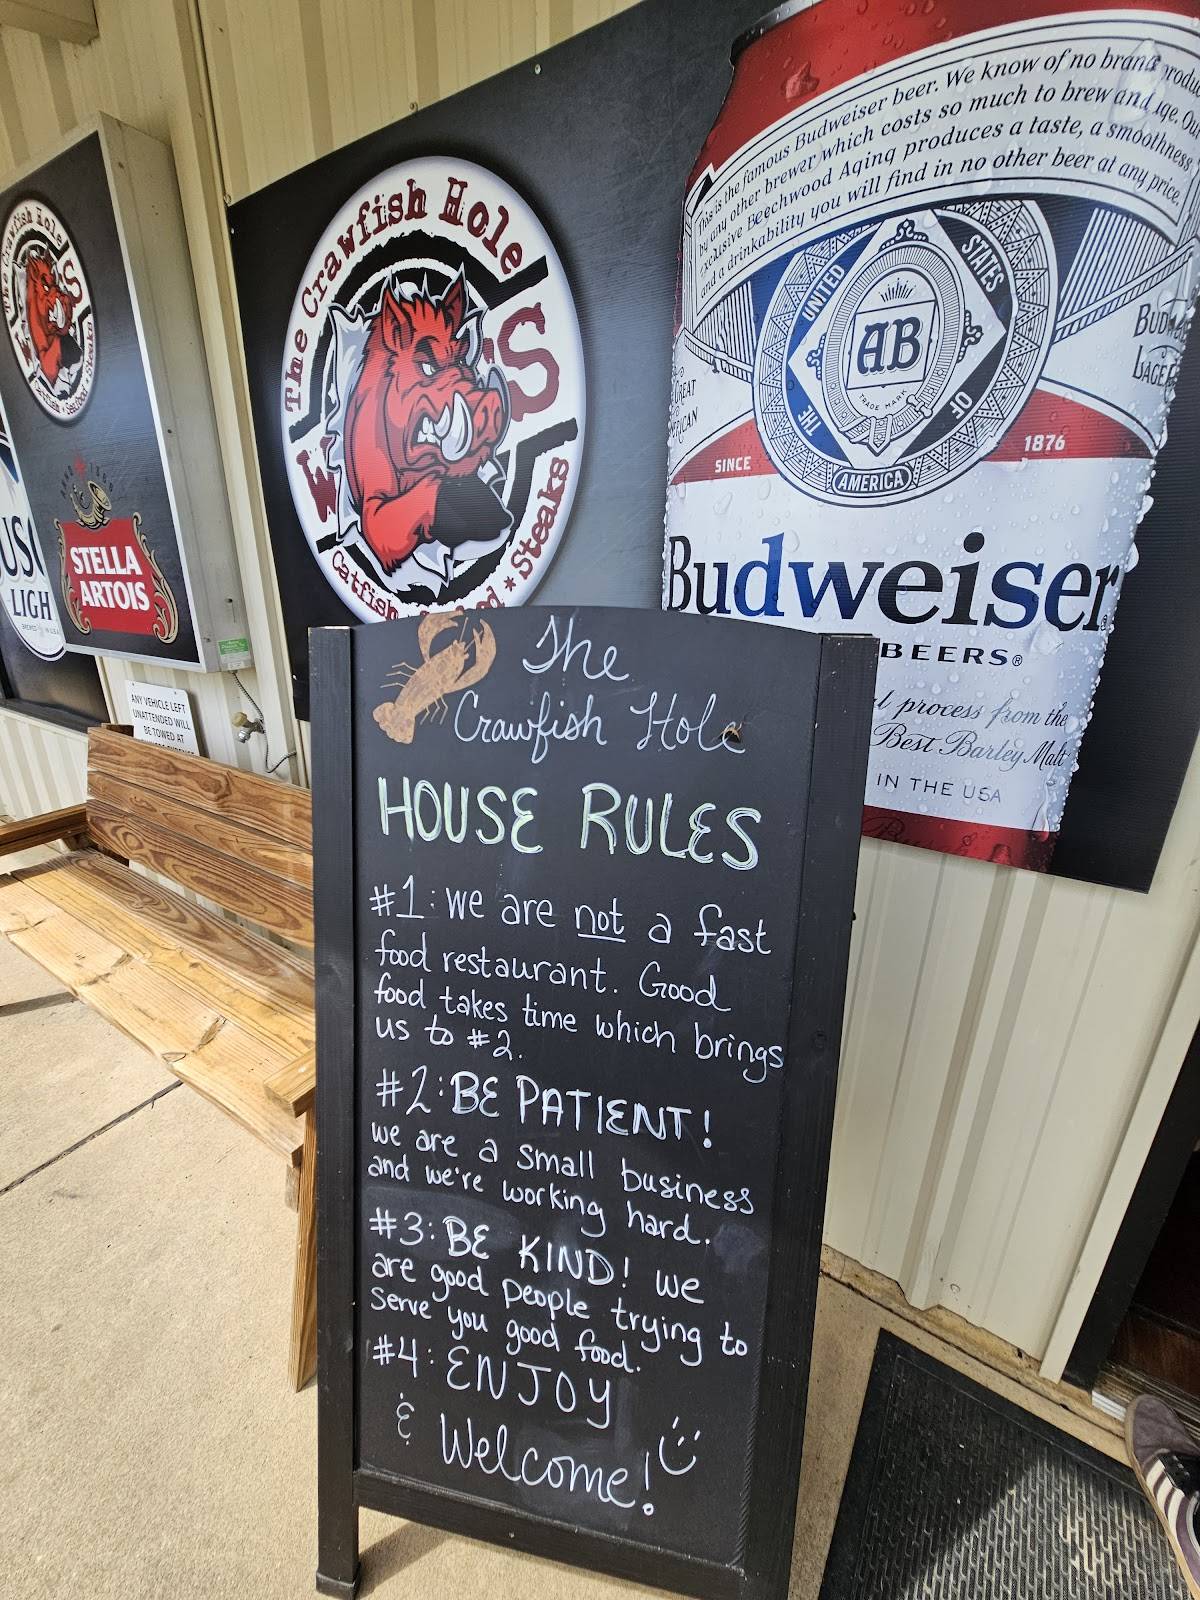 The Crawfish Hole
S
Steaks
STELLA
ARTOIS
LIGH
ANY VEHICLE LEFT
UNATTENDED WILL
BE TOWED AT
The Crawfish Hole
S
Catfish
Steaks
This is the famous Budweiser beer. We know of no brand
by any other brewer which costs so much to brew and age. Our
exclusive Beechwood Aging produces a taste, a smoothness
and a drinkability you will find in no other beer at any price.
UNITED
STATES
THE
OF
AMERICA
AB
TRADE MARK
SINCE
1876
Budweiser
BEERS®
process from the
Best Barley Malt
IN THE USA
The
Crawfish Hole
HOUSE RULES
#1: We are not a fast
food restaurant. Good
food takes time which brings
us to #2.
#2: BE PATIENT!
we are a small business
and we're working hard.
#3: BE KIND! We
are good people trying to
serve you good food.
#4: ENJOY
& Welcome!